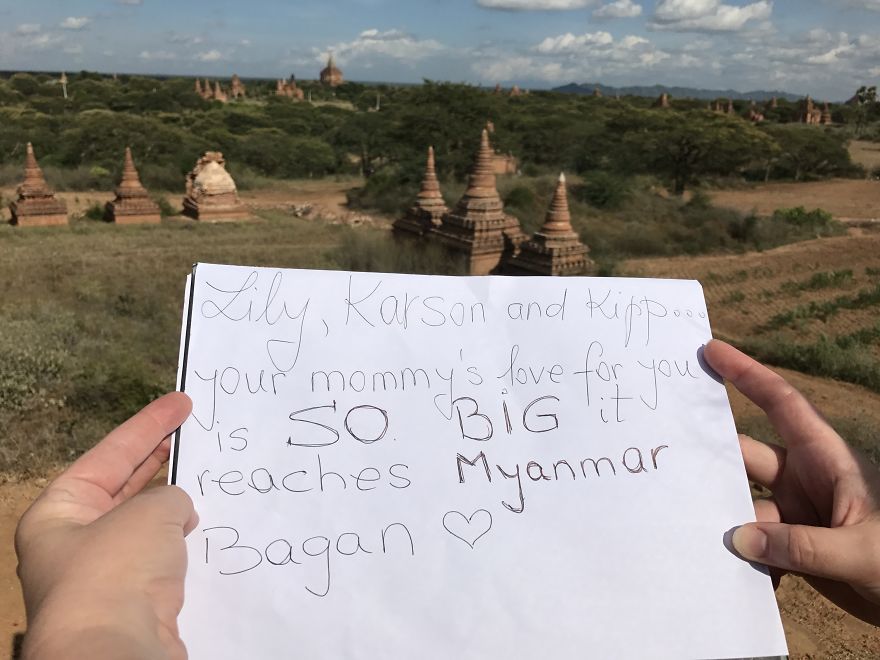 Lily, Karson and Kipp...
your mommy's love for you
is SO BIG it
reaches Myanmar
Bagan ♡